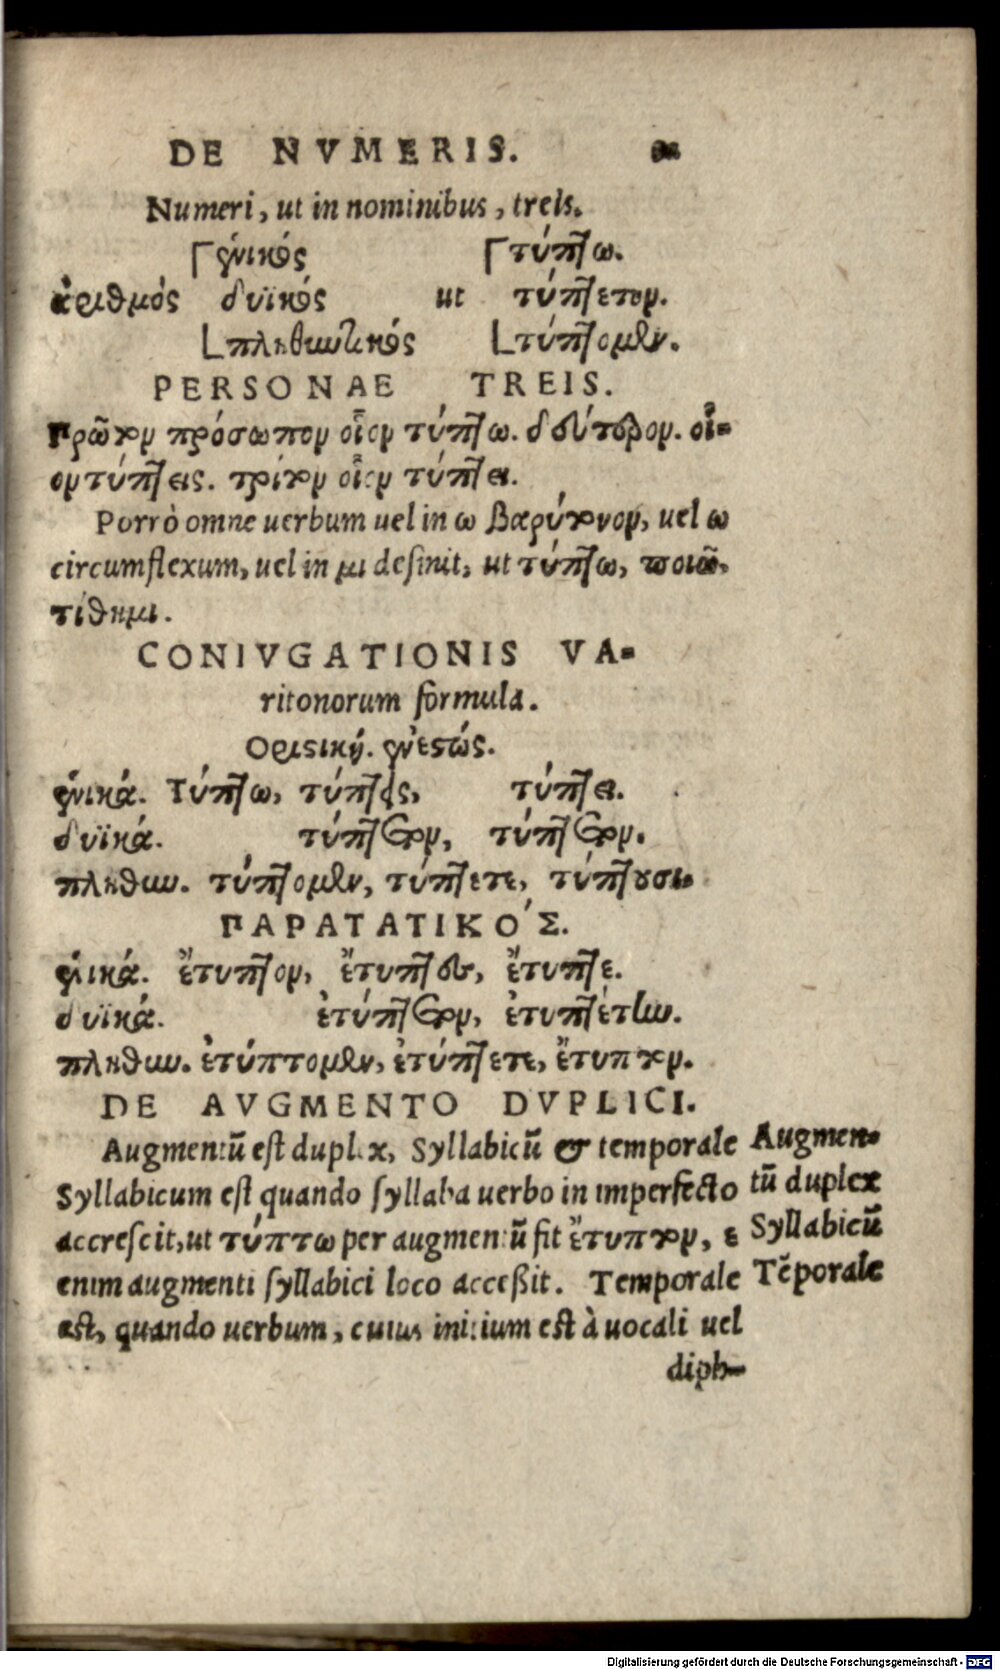 DE NVMERIS.
Numeri, ut in nominibus, treis.
ἑνικός τύπτω.
ἀριθμός δυϊκός ut τύπτετον.
πληθυντικός τύπτομεν.
PERSONAE TREIS.
Πρῶτον πρόσωπον οἷον τύπτω. δεύτερον. οἷ-
ον τύπτεις. τρίτον οἷον τύπτει.
Porrò omne uerbum uel in ω βαρύτονον, uel ω
circumflexum, uel in μι desinit, ut τύπτω, ποιῶ,
τίθημι.
CONIVGATIONIS VA-
ritonorum formula.
Οριστική. ἐνεστώς.
ἑνικά. Τύπτω, τύπτεις, τύπτει.
δυϊκά. τύπτετον, τύπτετον.
πληθυν. τύπτομεν, τύπτετε, τύπτουσι.
ΠΑΡΑΤΑΤΙΚΟ´Σ.
ἑνικά. ἔτυπτον, ἔτυπτες, ἔτυπτε.
δυϊκά. ἐτύπτετον, ἐτυπτέτην.
πληθυν. ἐτύπτομεν, ἐτύπτετε, ἔτυπτον.
DE AVGMENTO DVPLICI.
Augmentū est duplex, Syllabicū & temporale Augmen-
Syllabicum est quando syllaba uerbo in imperfecto tū duplex
accrescit, ut τύπτω per augmentū fit ἔτυπτον, ε Syllabicū
enim augmenti syllabici loco acceßit. Temporale Tēporale
est, quando uerbum, cuius initium est à uocali uel
diph-
Digitalisierung gefördert durch die Deutsche Forschungsgemeinschaft - DFG